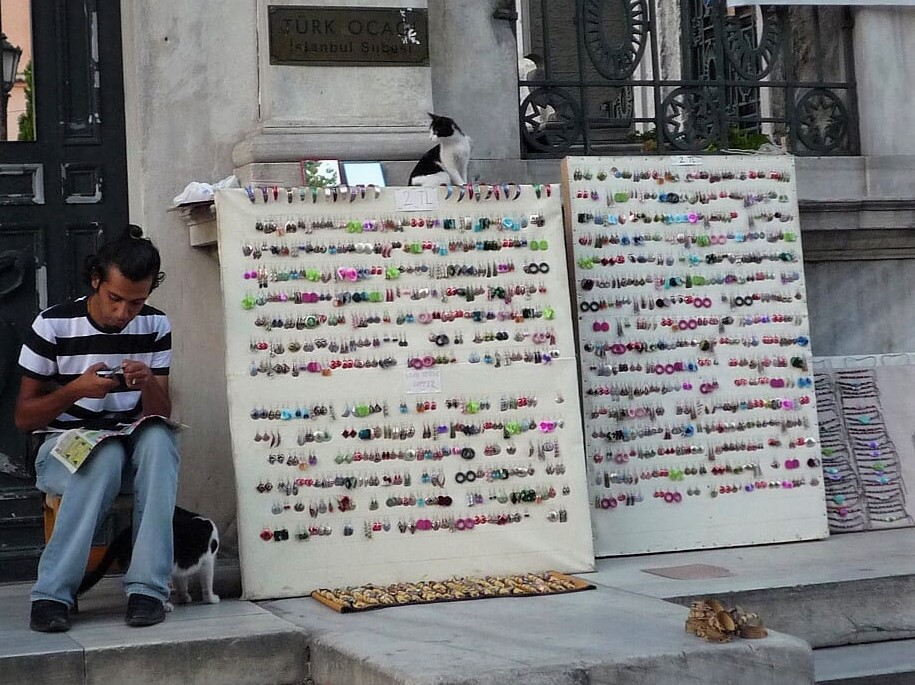 TÜRK OCAĞI
İstanbul Şubesi
2 TL
2 TL